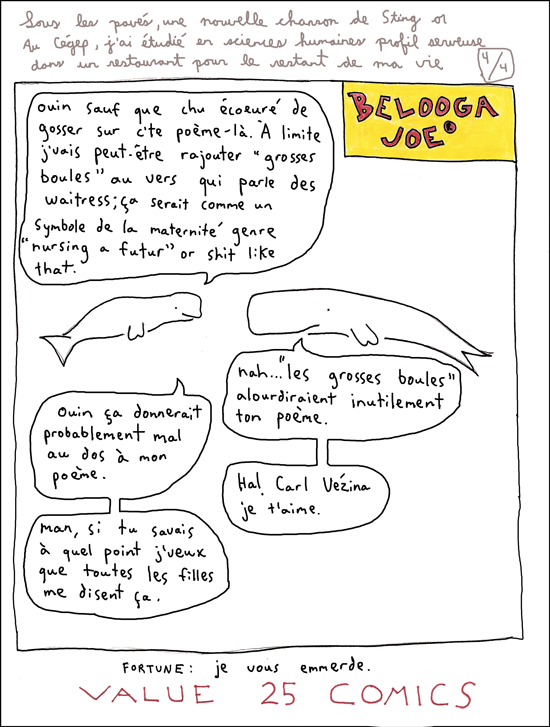 Sous les pavés, une nouvelle chanson de Sting or
Au Cégep, j'ai étudié en sciences humaines profil serveuse
dans un restaurant pour le restant de ma vie
4/4
BELOOGA
JOE®
ouin sauf que chu écoeuré de
gosser sur c'te poème-là. À limite
j'vais peut-être rajouter "grosses
boules" au vers qui parle des
waitress; ça serait comme un
symbole de la maternité genre
"nursing a futur" or shit like
that.
nah... "les grosses boules"
alourdiraient inutilement
ton poème.
Ouin ça donnerait
probablement mal
au dos à mon
poème.
Ha! Carl Vézina
je t'aime.
man, si tu savais
à quel point j'veux
que toutes les filles
me disent ça.
FORTUNE: je vous emmerde.
VALUE 25 COMICS